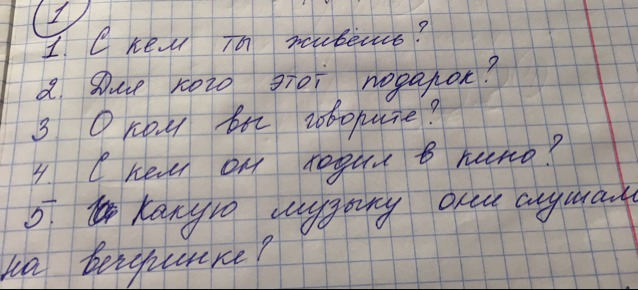 1
1. С кем ты живёшь?
2. Для кого этот подарок?
3 О ком вы говорите?
4. С кем он ходил в кино?
5. Какую музыку они слушали
на вечеринке?